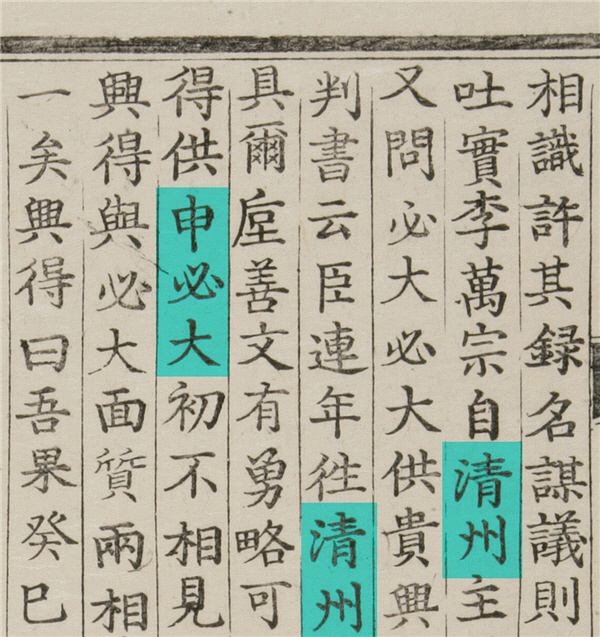 相識許其録名謀議則
吐實李萬宗自清州主
又問必大必大供貴興
判書云臣連年徃清州
具爾㕓善文有勇略可
得供申必大初不相見
興得與必大面質兩相
一矣興得曰吾果癸巳